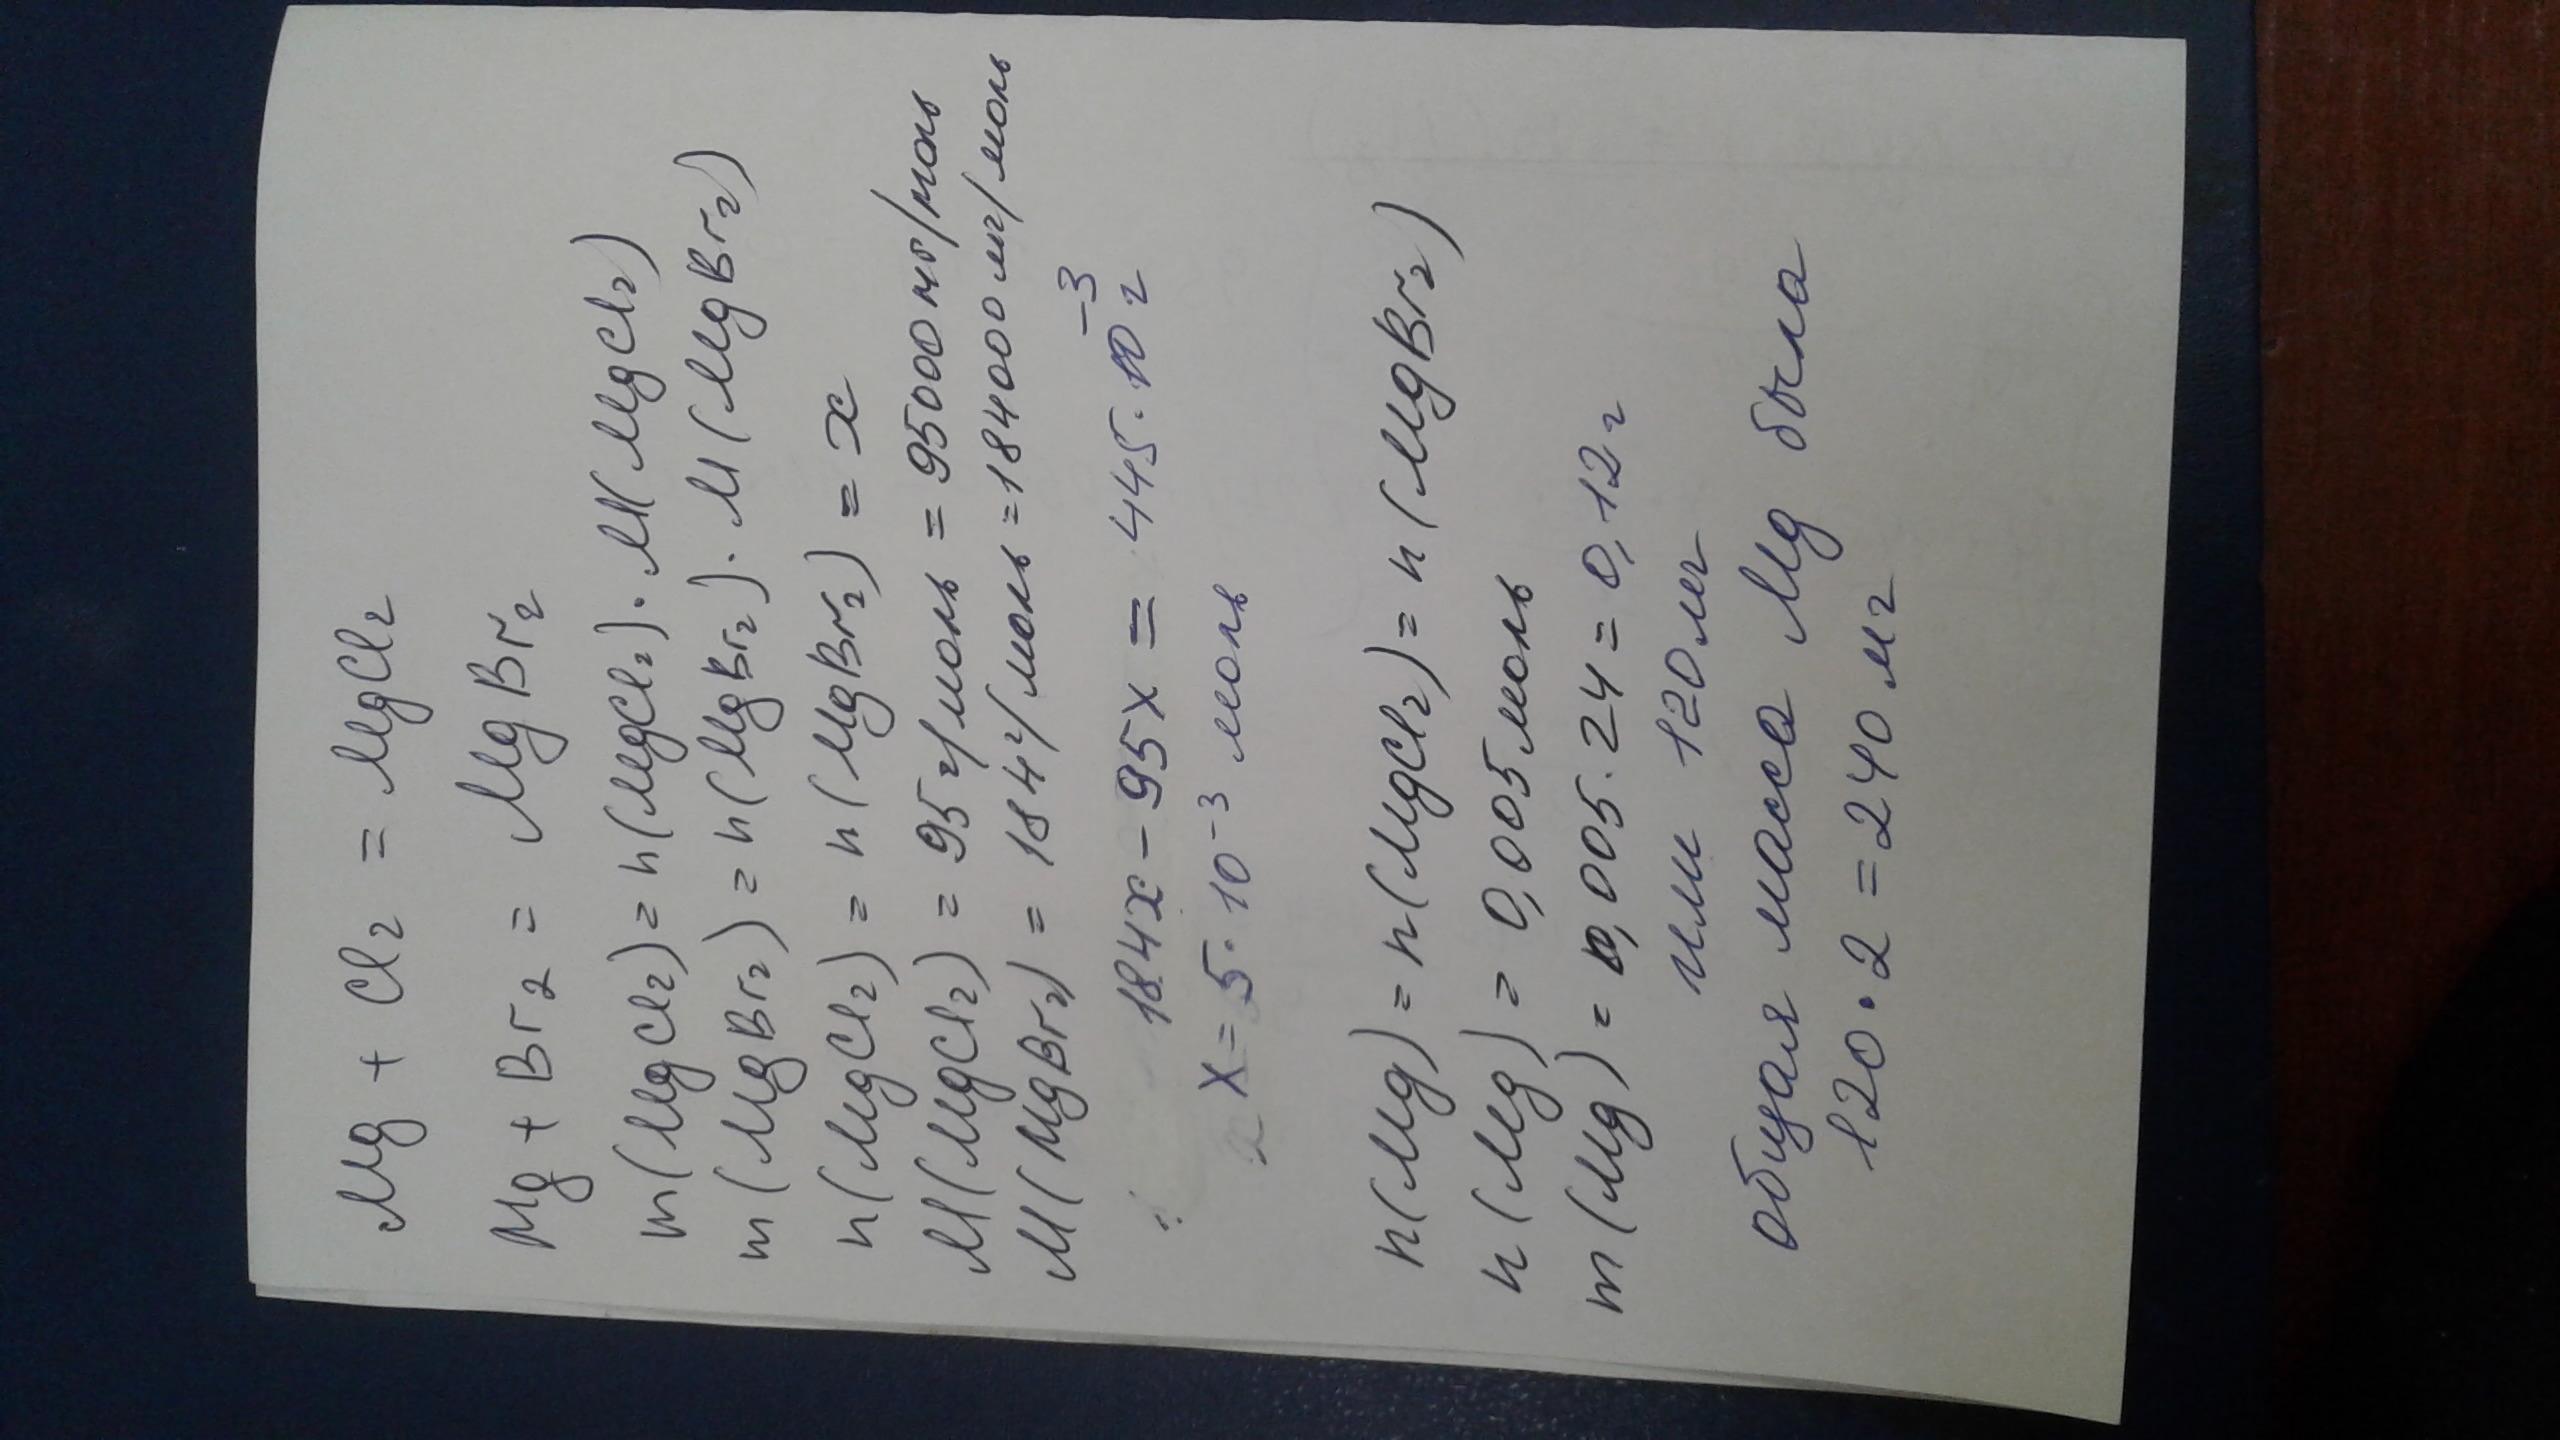 Mg + Cl₂ = MgCl₂
Mg + Br₂ = MgBr₂
m(MgCl₂) = n(MgCl₂)·M(MgCl₂)
m(MgBr₂) = n(MgBr₂)·M(MgBr₂)
n(MgCl₂) = n(MgBr₂) = x
M(MgCl₂) = 95 г/моль = 95000 мг/моль
M(MgBr₂) = 184 г/моль = 184000 мг/моль
184x - 95x = 445·10⁻³ г
x = 5·10⁻³ моль
n(Mg) = n(MgCl₂) = n(MgBr₂)
n(Mg) = 0,005 моль
m(Mg) = 0,005·24 = 0,12 г
или 120 мг
общая масса Mg была
120·2 = 240 мг